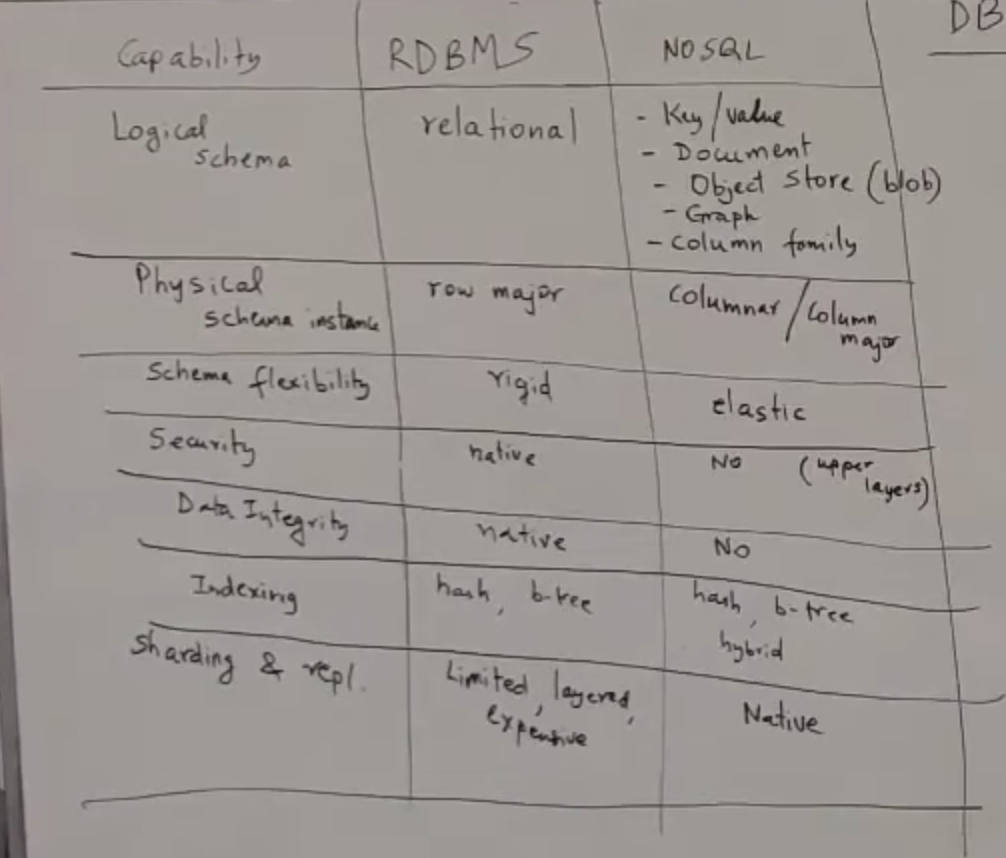 DB
Capability RDBMS NOSQL
Logical schema relational - Key/value
- Document
- Object Store (blob)
- Graph
- Column family
Physical schema instance row major Columnar / Column major
Schema flexibility rigid elastic
Security native NO (upper layers)
Data Integrity native NO
Indexing hash, b-tree hash, b-tree
hybrid
Sharding & repl. Limited, layered, expensive Native